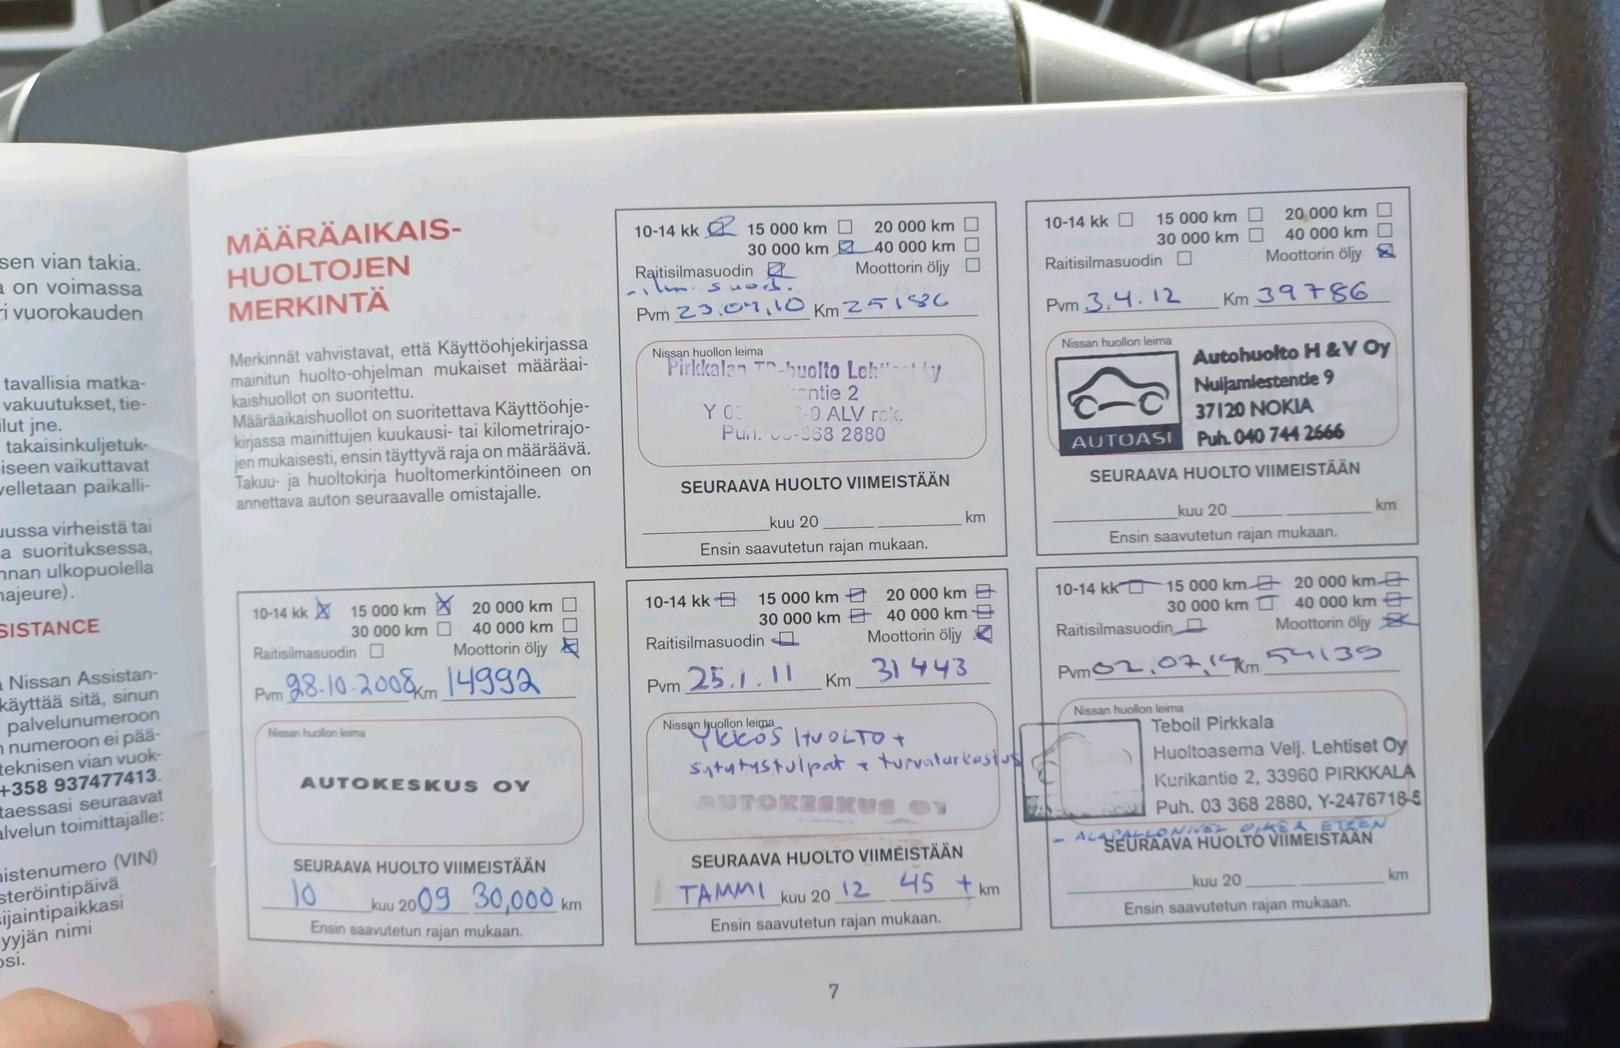 sen vian takia.
on voimassa
ri vuorokauden
tavallisia matka-
vakuutukset, tie-
ilut jne.
takaisinkuljetuk-
iseen vaikuttavat
velletaan paikalli-
uussa virheistä tai
a suorituksessa,
nnan ulkopuolella
najeure).
SISTANCE
Nissan Assistan-
käyttää sitä, sinun
palvelunumeroon
numeroon ei pää-
teknisen vian vuok-
+358 937477413.
taessasi seuraavat
lvelun toimittajalle:
nistenumero (VIN)
steröintipäivä
sijaintipaikkasi
yyjän nimi
osi.
MÄÄRÄAIKAIS-
HUOLTOJEN
MERKINTÄ
Merkinnät vahvistavat, että Käyttöohjekirjassa
mainitun huolto-ohjelman mukaiset määräai-
kaishuollot on suoritettu.
Määräaikaishuollot on suoritettava Käyttöohje-
kirjassa mainittujen kuukausi- tai kilometrirajo-
jen mukaisesti, ensin täyttyvä raja on määräävä.
Takuu- ja huoltokirja huoltomerkintöineen on
annettava auton seuraavalle omistajalle.
10-14 kk 15 000 km 20 000 km
30 000 km 40 000 km
Raitisilmasuodin Moottorin öljy
Pvm 28.10.2008 Km 14992
Nissan huollon leima
AUTOKESKUS OY
SEURAAVA HUOLTO VIIMEISTÄÄN
10 kuu 2009 30,000 km
Ensin saavutetun rajan mukaan.
10-14 kk 15 000 km 20 000 km
30 000 km 40 000 km
Raitisilmasuodin Moottorin öljy
- ilm. suod.
Pvm 23.04.10 Km 25186
Nissan huollon leima
Pirkkalan huolto
ntie 2
Y 0 -9 ALV rek.
Puh. 368 2880
SEURAAVA HUOLTO VIIMEISTÄÄN
kuu 20 km
Ensin saavutetun rajan mukaan.
10-14 kk 15 000 km 20 000 km
30 000 km 40 000 km
Raitisilmasuodin Moottorin öljy
Pvm 25.1.11 Km 31443
Nissan huollon leima
YKKÖS HUOLTO +
sytytystulpat + turvatarkastus
AUTOKESKUS OY
SEURAAVA HUOLTO VIIMEISTÄÄN
TAMMI kuu 20 12 45 + km
Ensin saavutetun rajan mukaan.
10-14 kk 15 000 km 20 000 km
30 000 km 40 000 km
Raitisilmasuodin Moottorin öljy
Pvm 3.4.12 Km 39786
Nissan huollon leima
AUTOASI
Autohuolto H & V Oy
Nuijamiestentie 9
37120 NOKIA
Puh. 040 744 2666
SEURAAVA HUOLTO VIIMEISTÄÄN
kuu 20 km
Ensin saavutetun rajan mukaan.
10-14 kk 15 000 km 20 000 km
30 000 km 40 000 km
Raitisilmasuodin Moottorin öljy
Pvm 02.07.14 Km 54139
Nissan huollon leima
Teboil Pirkkala
Huoltoasema Velj. Lehtiset Oy
Kurikantie 2, 33960 PIRKKALA
Puh. 03 368 2880, Y-2476718-5
- ALAPALLONIVEL OIKEA ETEEN
SEURAAVA HUOLTO VIIMEISTÄÄN
kuu 20 km
Ensin saavutetun rajan mukaan.
7